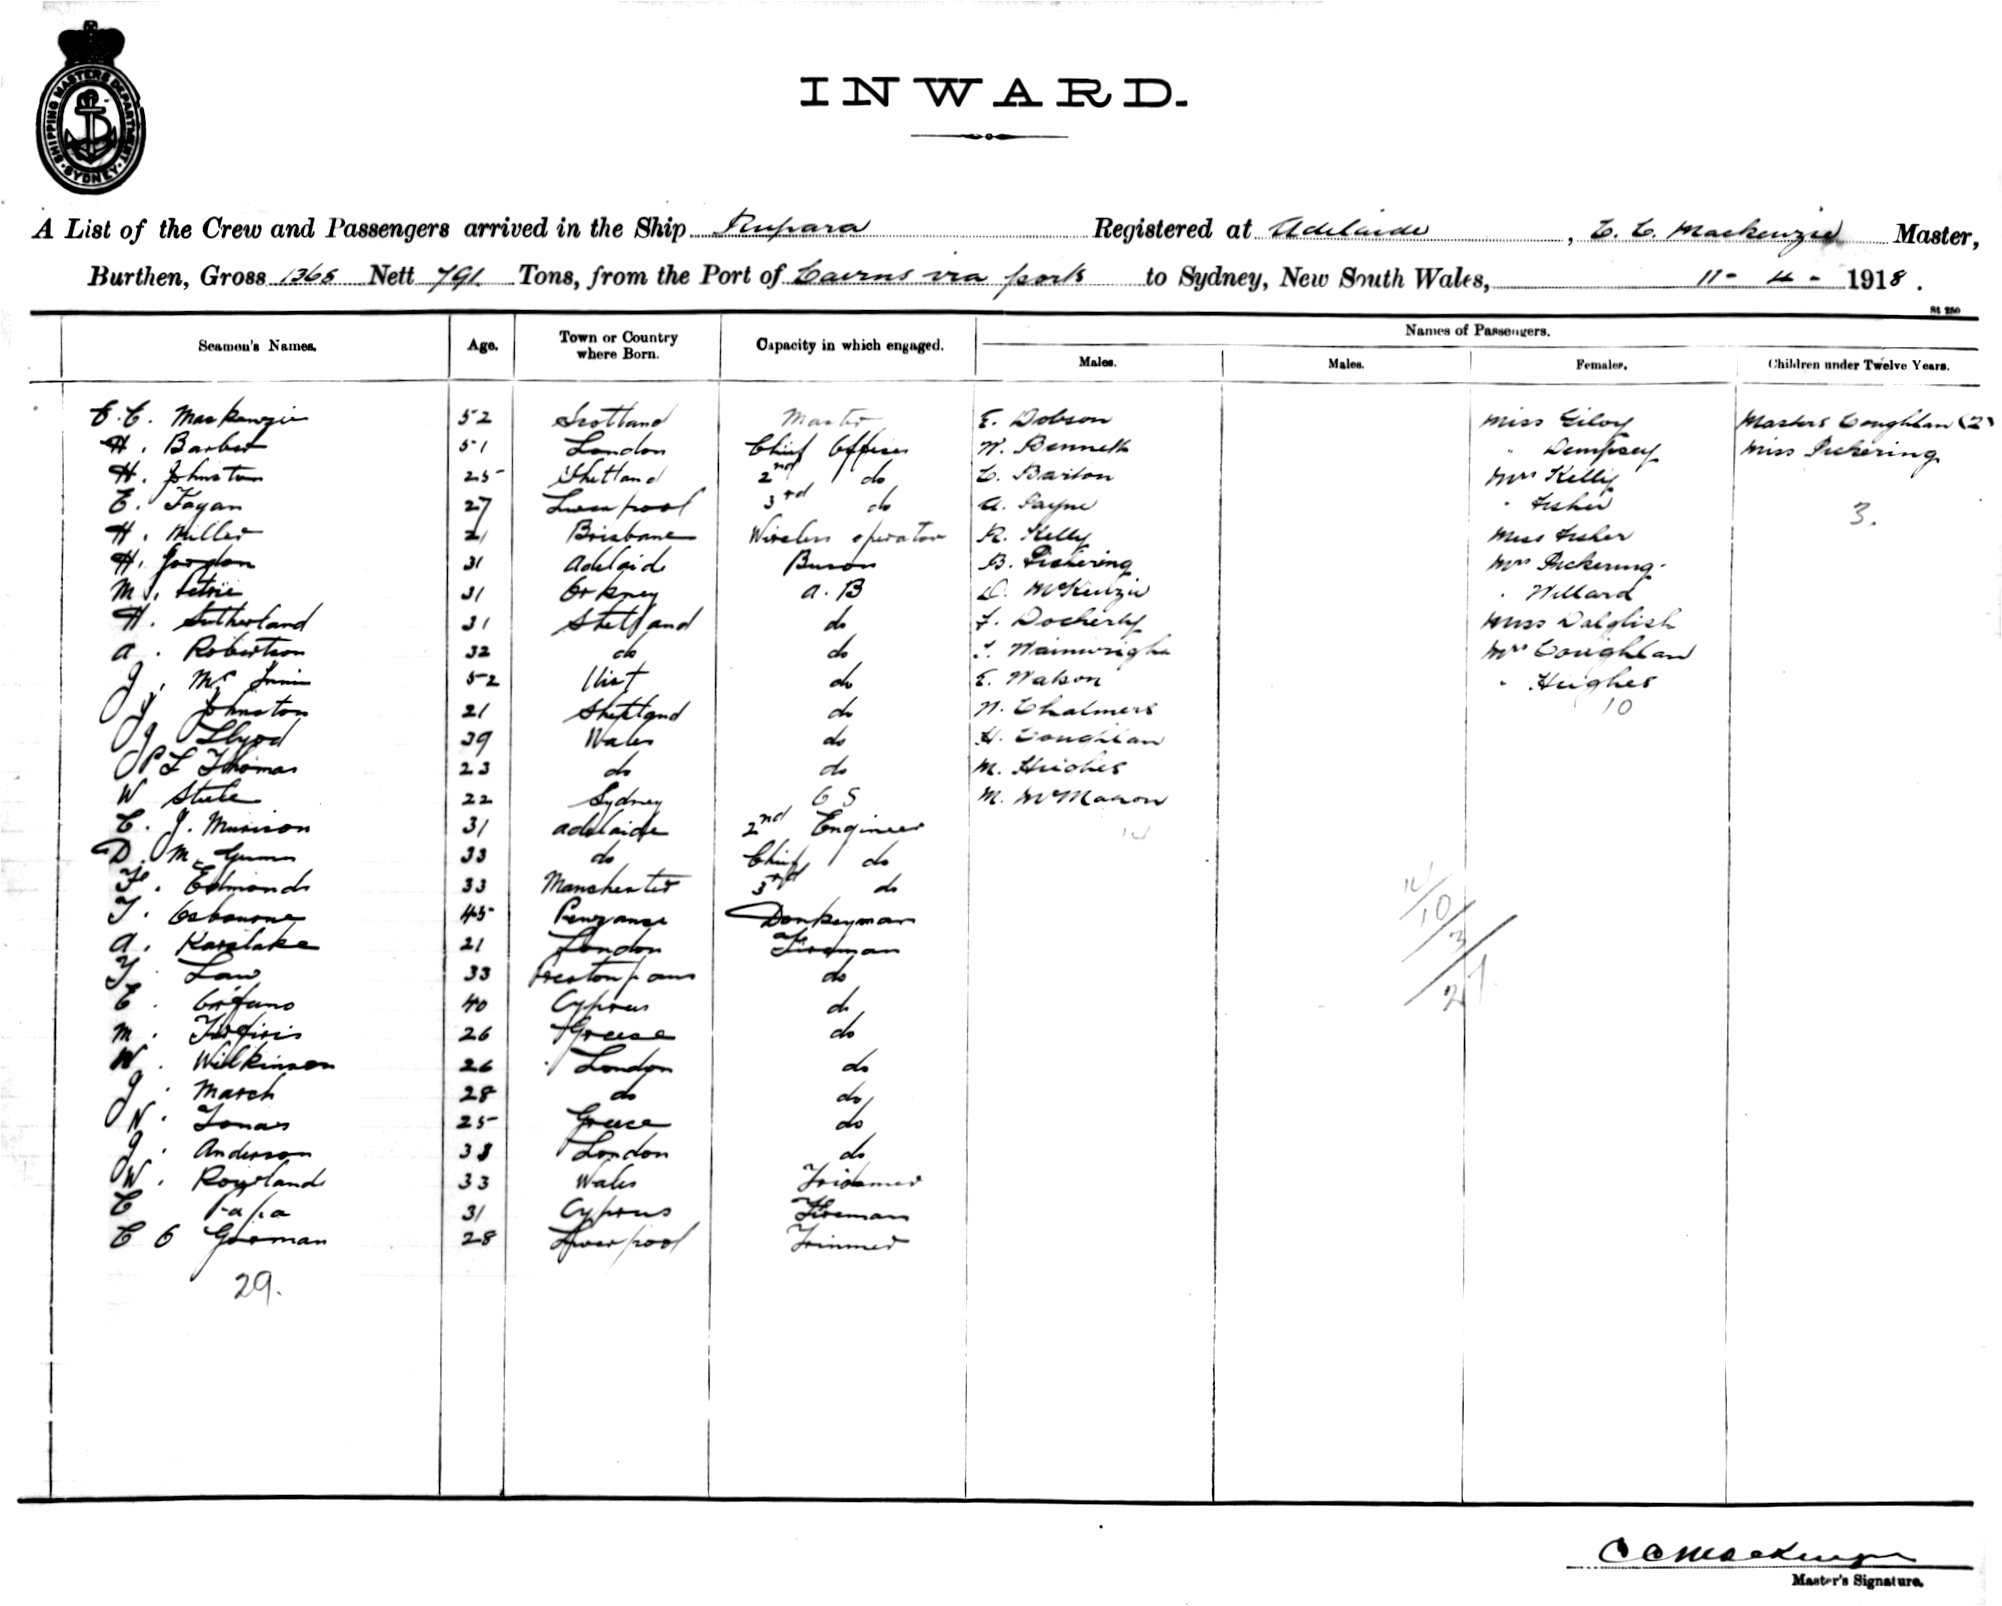 SHIPPING MASTERS DEPARTMENT · SYDNEY ·
INWARD.
A List of the Crew and Passengers arrived in the Ship Rupara Registered at Adelaide, C. C. Mackenzie Master,
Burthen, Gross 1365 Nett 791 Tons, from the Port of Cairns via ports to Sydney, New South Wales, 11-4-1918.
St 250
Seamen's Names. Age. Town or Country where Born. Capacity in which engaged. Names of Passengers.
Males. Males. Females. Children under Twelve Years.
C. C. Mackenzie 52 Scotland Master E. Dobson Miss Giloy Masters Coughlan (2)
H. Barber 51 London Chief Officer W. Bennett " Dempsey Miss Pickering
H. Johnston 25 Shetland 2nd do C. Barton Mrs Kelly
E. Fagan 27 Liverpool 3rd do A. Payne " Fisher 3.
H. Miller 21 Brisbane Wireless operator R. Kelly Miss Fisher
H. Gordon 31 Adelaide Buson B. Pickering Mrs Pickering
M. Petrie 31 Orkney A. B D. McKenzie " Willard
H. Sutherland 31 Shetland do F. Docherty Miss Dalglish
A. Robertson 32 do do Wainwright Mrs Coughlan
J. Mc 52 Uist do E. Watson " Hughes
J. Johnston 21 Shetland do N. Chalmers 10
J. Llyod 39 Wales do H. Coughlan
P L Thomas 23 do do M. Hughes
W Steele 22 Sydney O S M. McMahon
C. J. Munison 31 Adelaide 2nd Engineer 14
D. Mc Gunn 33 do Chief do
F. Edmonds 33 Manchester 3rd do
T. Osbourne 45 Penzance Donkeyman
A. Karslake 21 London Fireman
T. Law 33 Prestonpans do
C. Orfano 40 Cyprus do
M. 26 Greese do
W. Wilkinson 26 London do
J. March 28 do do
N. Tonas 25 Greese do
J. Anderson 38 London do
W. Rowlands 33 Wales Trimmer
C Papa 31 Cyprus Fireman
C O Gorman 28 Liverpool Trimmer
29.
14/10/3/27
C C Mackenzie
Master's Signature.